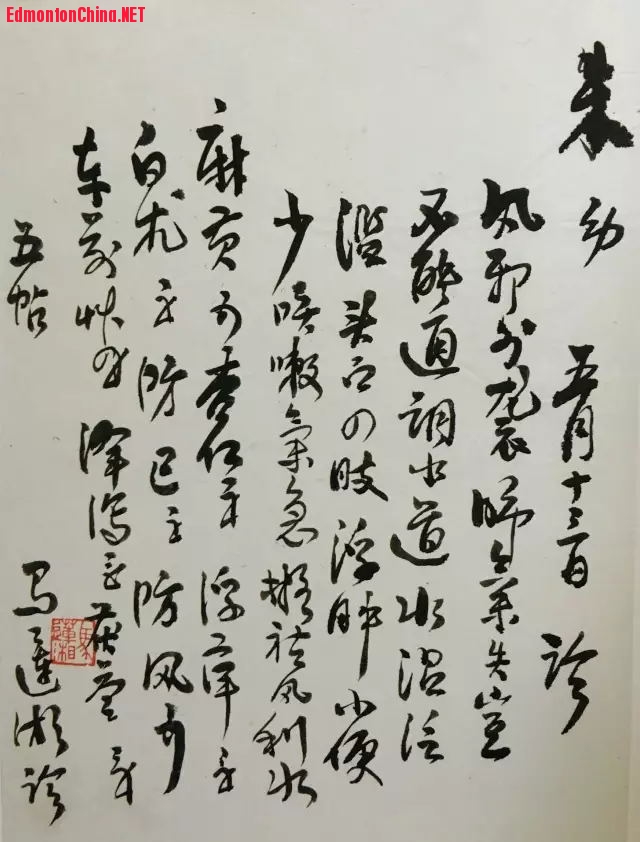 EdmontonChina.NET
朱幼 五月十三日 诊
风邪外襲肺氣失宣
不能通調水道水湿泛
滥头面四肢浮肿小便
少咳嗽氣急擬祛风利水
麻黄 杏仁 浮萍
白术 防己 防风
车前草 泽泻 茯苓
五帖 马莲湘诊